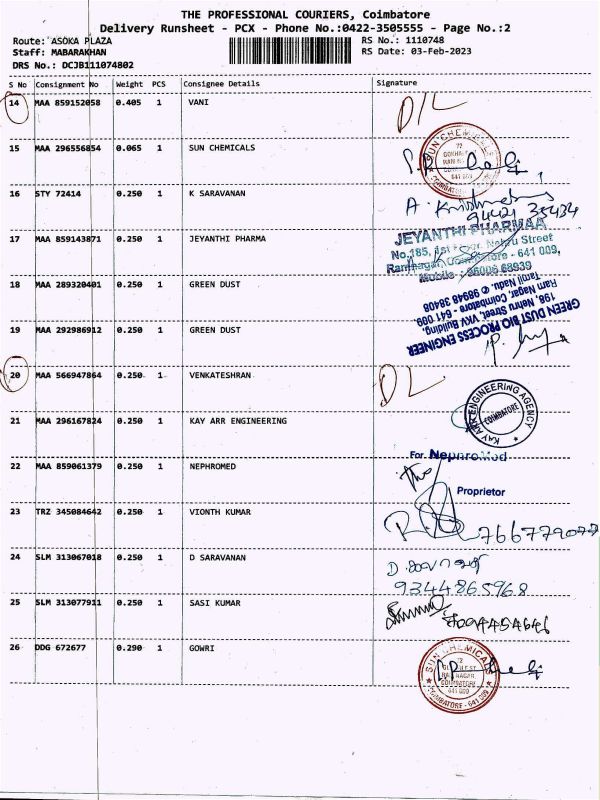 THE PROFESSIONAL COURIERS, Coimbatore
Delivery Runsheet - PCX - Phone No.:0422-3505555 - Page No.:2
Route: ASOKA PLAZA
RS No.: 1110748
Staff: MABARAKHAN
RS Date: 03-Feb-2023
DRS No.: DCJB111074802
S No Consignment No Weight PCS Consignee Details Signature
14 MAA 859152058 0.405 1 VANI D/L
15 MAA 296556854 0.065 1 SUN CHEMICALS
SUN CHEMICALS
COIMBATORE
641 009
16 STY 72414 0.250 1 K SARAVANAN
94421 35434
17 MAA 859143871 0.250 1 JEYANTHI PHARMA
JEYANTHI PHARMAA
No.185, 1st Floor, Nehru Street
Ramnagar, Coimbatore - 641 009,
Mobile : 96006 68939
18 MAA 289320401 0.250 1 GREEN DUST
19 MAA 292986912 0.250 1 GREEN DUST
GREEN DUST BIO PROCESS ENGINEER
198, Nehru Street, VKV Building,
Ram Nagar, Coimbatore - 641 009.
Tamil Nadu. @ 98948 38408
20 MAA 566947864 0.250 1 VENKATESHRAN DL
21 MAA 296167824 0.250 1 KAY ARR ENGINEERING
KAY ARR ENGINEERING AGENCY
COIMBATORE
22 MAA 859061379 0.250 1 NEPHROMED
For NephroMed
Proprietor
23 TRZ 345084642 0.250 1 VIONTH KUMAR
24 SLM 313067018 0.250 1 D SARAVANAN
9344865968
25 SLM 313077911 0.250 1 SASI KUMAR
26 DDG 672677 0.290 1 GOWRI
SUN CHEMICALS
COIMBATORE
641 009
COIMBATORE - 641 009